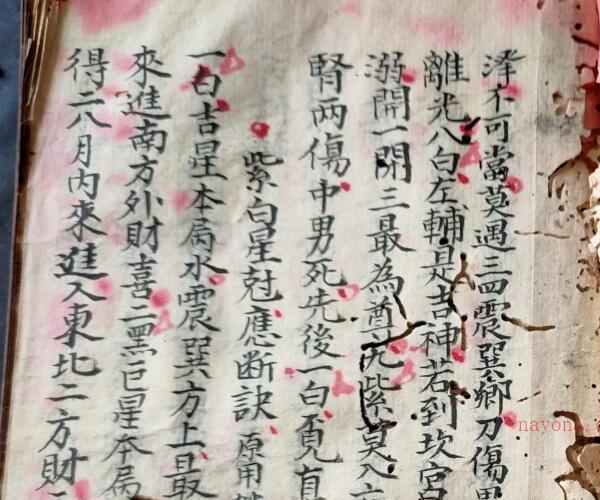 泽不可當莫遇三四震巽鄉刀傷
離光八白左輔是吉神若到坎宮
溺開一開三最為尊九紫莫入
腎兩傷中男死先後一白覓
紫白星尅應断訣原用
一白吉星本属水震巽方上最
來進南方外財喜二黑巨星本属
得二八月內來進入東北二方財
nayona